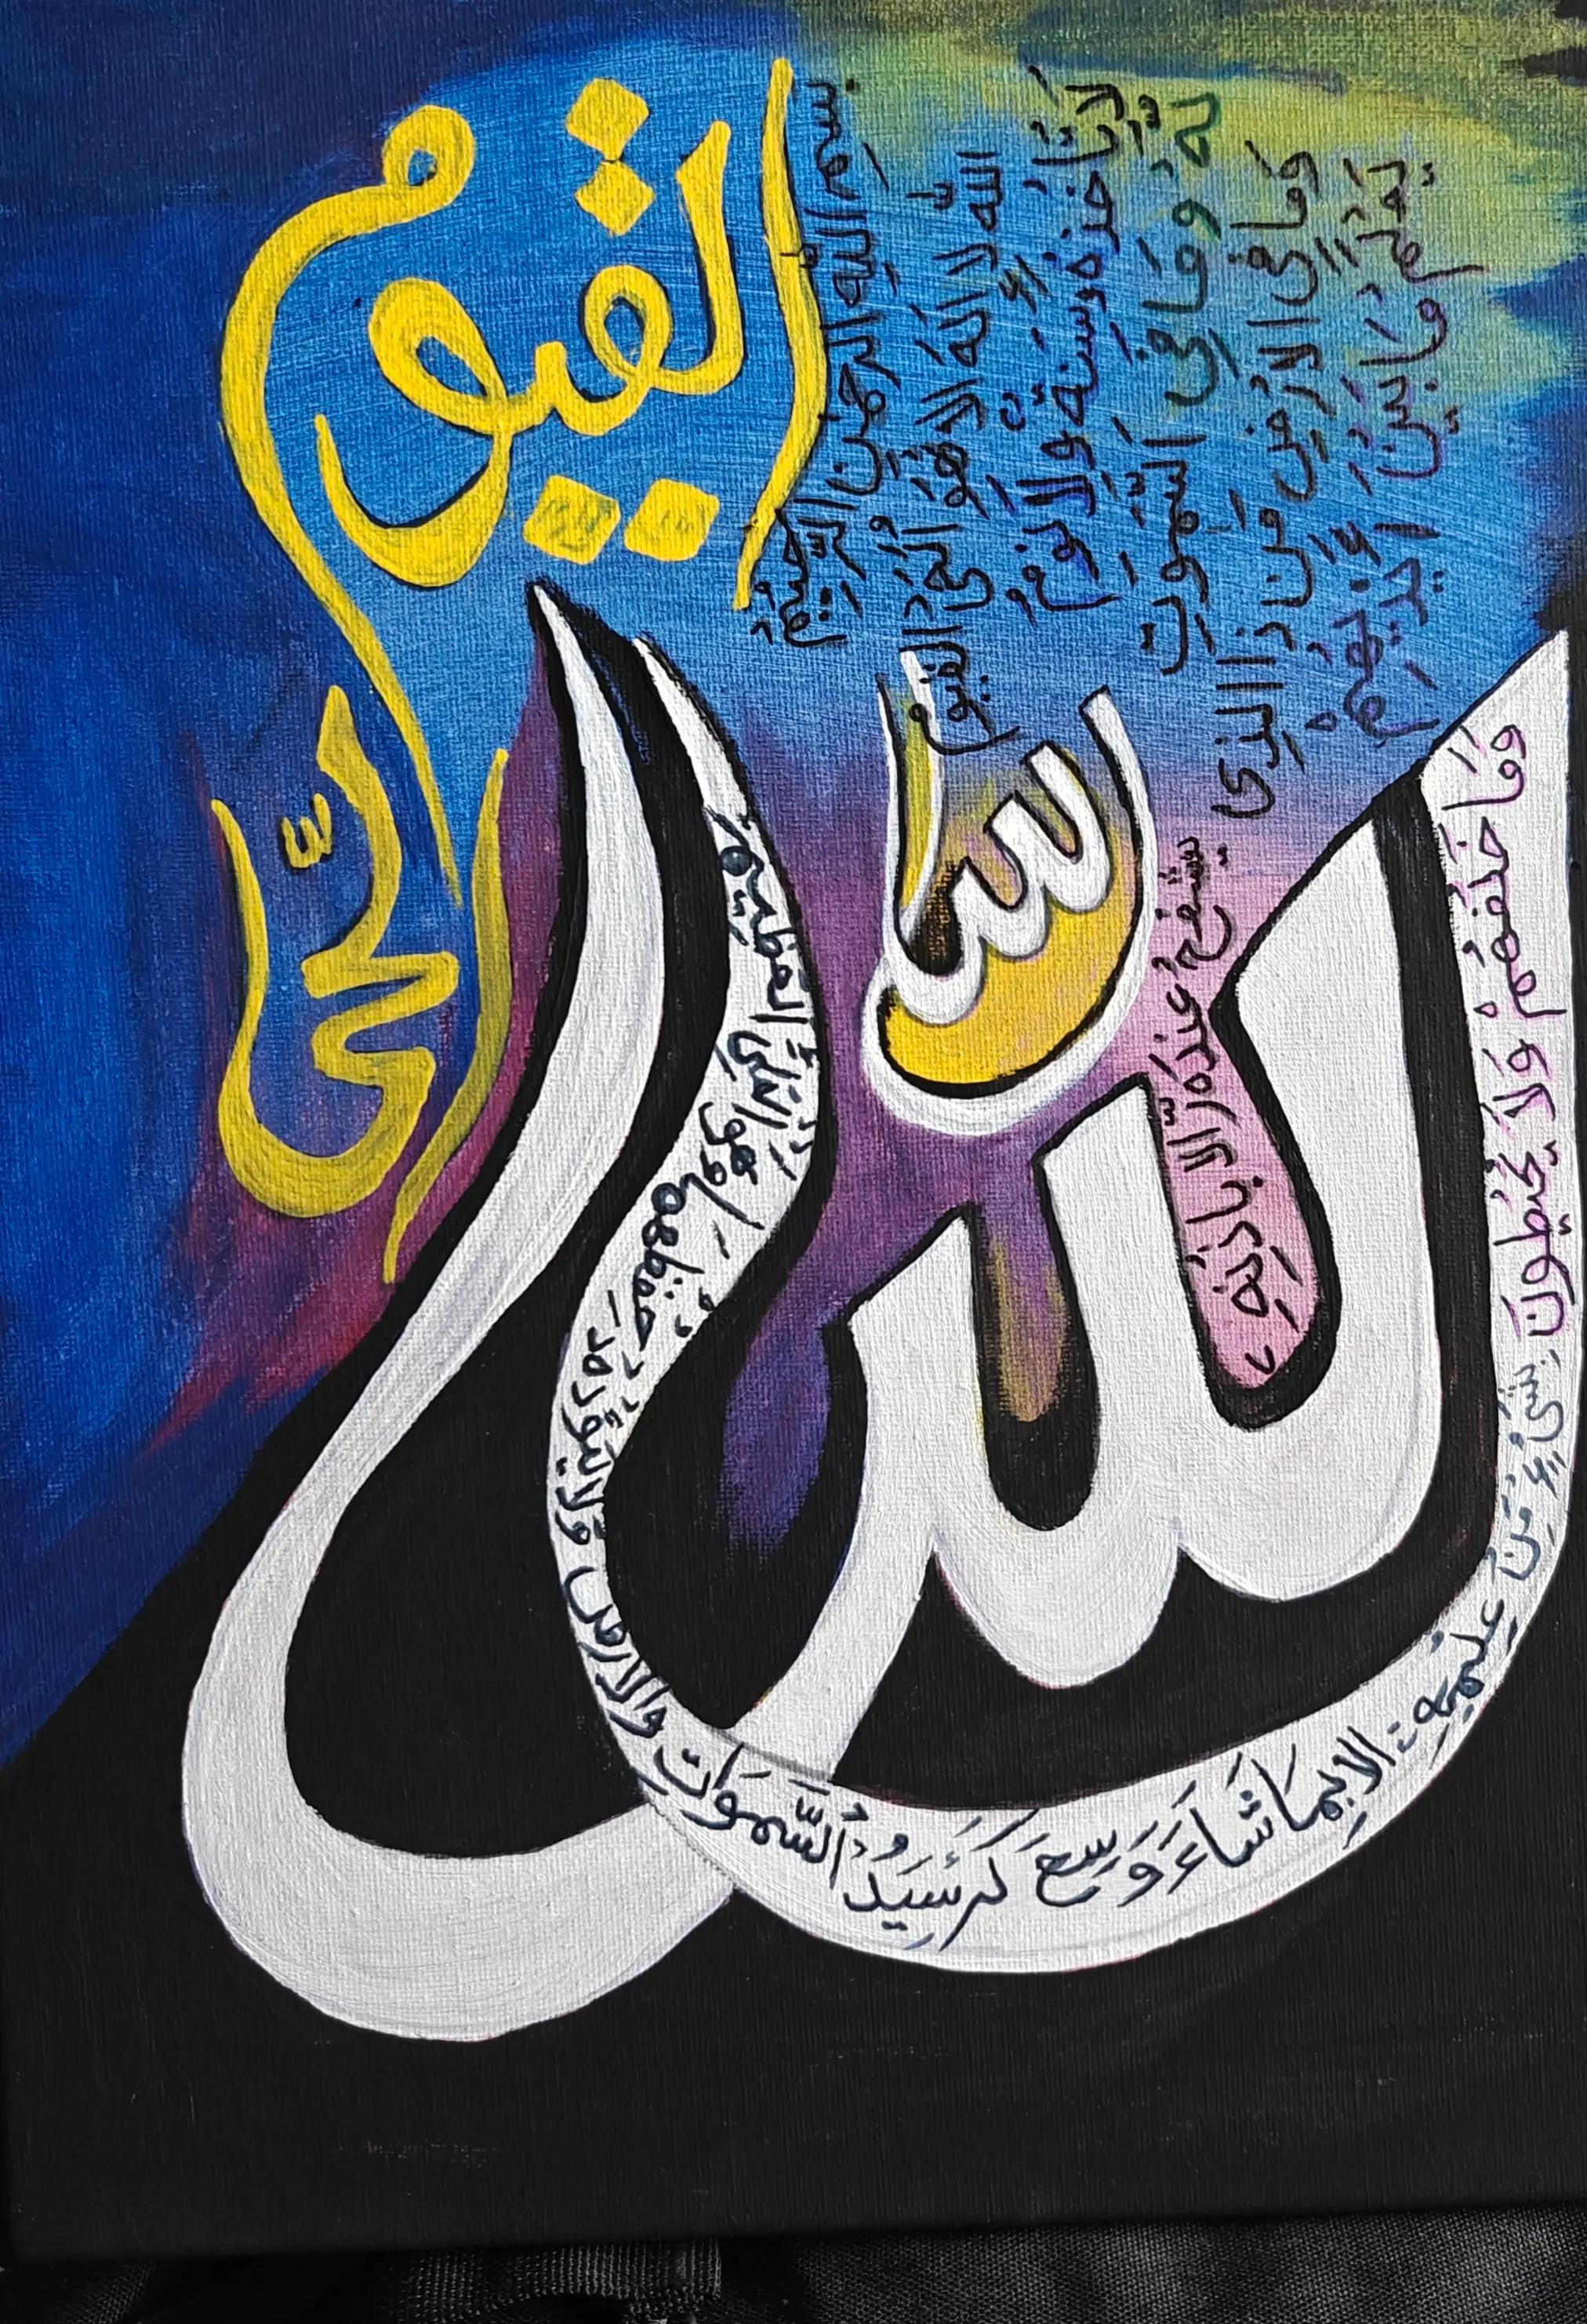 الله
القيوم
الحی
بسم الله الرحمن الرحيم
الله لا اله الا هو الحی القيوم
لا تاخذه سنة ولا نوم
له وما فی السموت
وما فی الارض من ذا الذی
يشفع عنده الا باذنه
يعلم ما بين ايديهم
وما خلفهم ولا يحيطون بشیء من علمه الا بما شاء وسع كرسيه السموت والارض ولا يئوده حفظهما وهو العلی العظيم